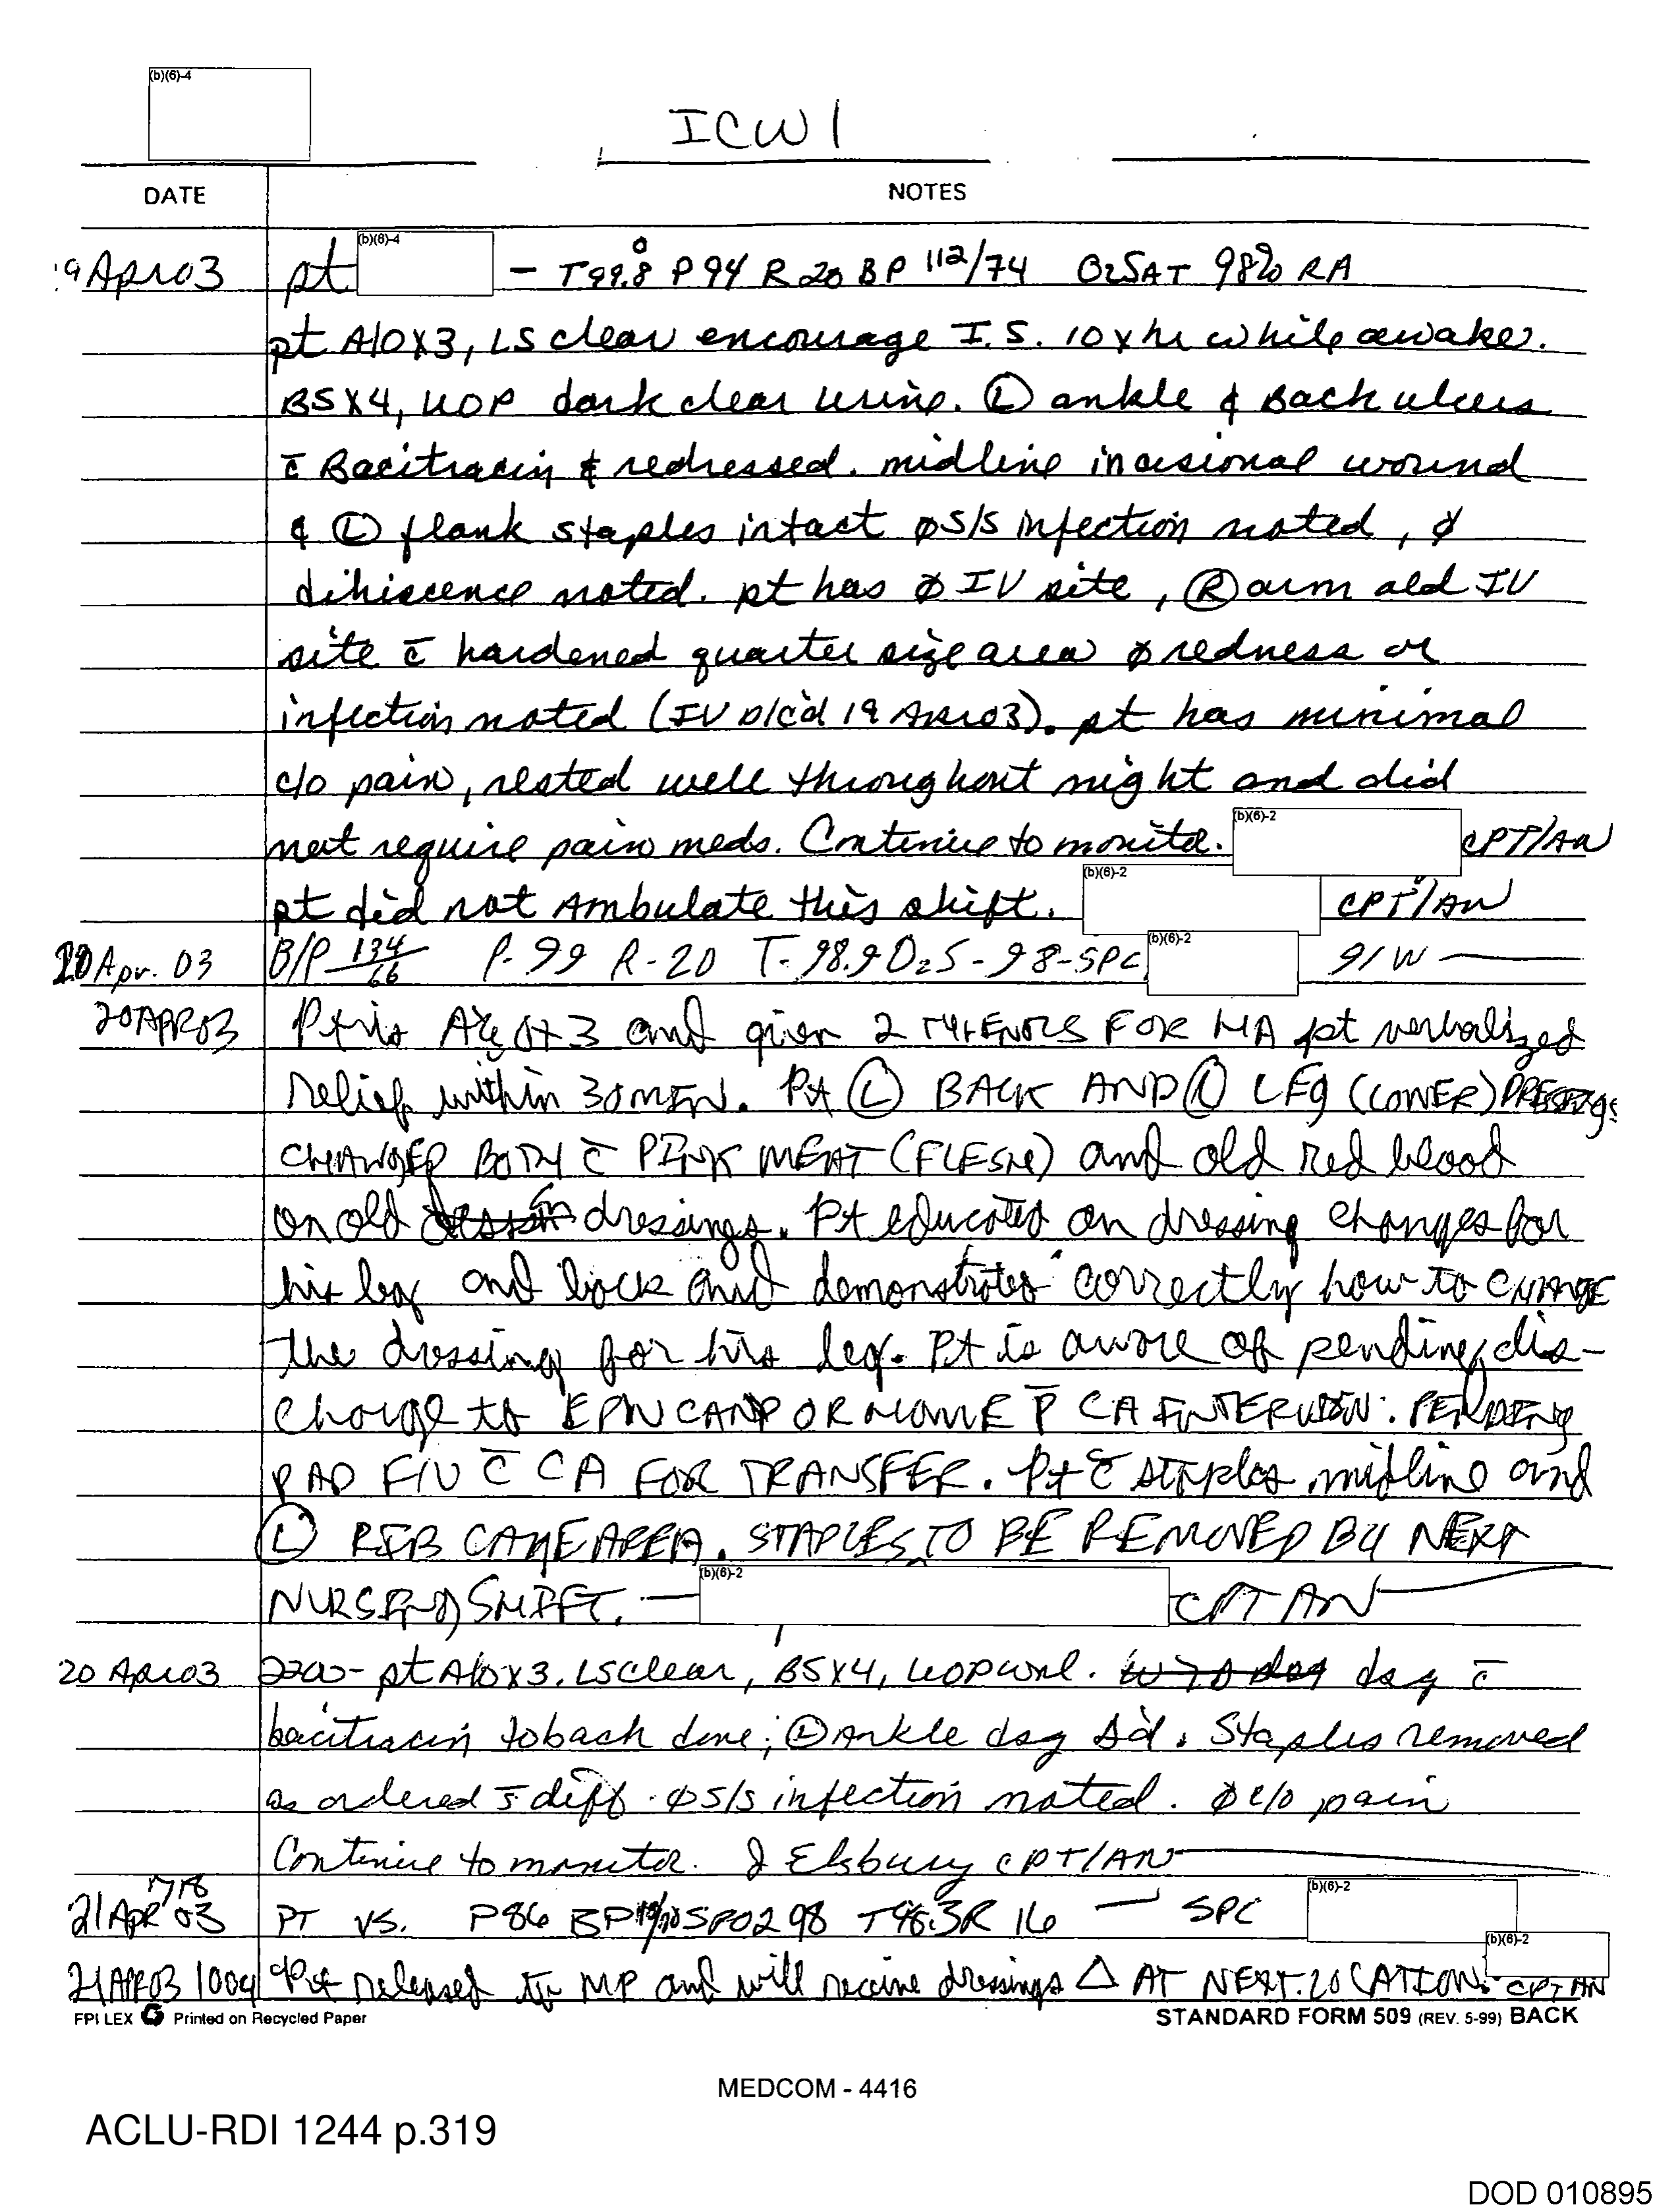 (b)(6)-4
ICW 1
DATE NOTES
19 Apr 03 pt (b)(6)-4 - T 99.8° P 94 R 20 BP 112/74 O2SAT 98% RA
pt A/Ox3, LS clear encourage I.S. 10 x hr while awake.
BSx4, UOP dark clear urine. Ⓛ ankle & Back ulcers
c̄ Bacitracin & redressed. midline incisional wound
& Ⓛ flank staples intact ø S/S infection noted, ø
dihiscence noted. pt has ø IV site, Ⓡ arm old IV
site c̄ hardened quarter size area ø redness or
infection noted (IV D/c'd 19 Apr 03). pt has minimal
c/o pain, rested well throughout night and did
not require pain meds. Continue to monitor. (b)(6)-2 CPT/AN
pt did not Ambulate this shift. (b)(6)-2 CPT/AN
20 Apr. 03 B/P 134/66 P-99 R-20 T-98.9 O2S-98-SPC (b)(6)-2 91W
20APR03 Pt is A & Ox3 and given 2 TYLENOLS FOR HA pt verbalized
relief within 30MIN. Pt Ⓛ BACK AND Ⓛ LEg (LOWER) DRESSINgs
CHANGED BOTH c̄ PINK MEAT (FLESH) and old red blood
on old dressings. Pt educated on dressing changes for
his leg and back and demonstrates correctly how to CHANGE
the dressing for his leg. Pt is aware of pending dis-
charge to EPW CAMP OR HOME p̄ CA INTERVIEW. PENDING
PAD F/U c̄ CA FOR TRANSFER. Pt c̄ staples midline and
Ⓛ RIB CAGE AREA. STAPLES TO BE REMOVED BY NEXT
NURSING SHIFT. (b)(6)-2 CPT AN
20 Apr 03 2200- pt A/Ox3. LS clear, BSx4, UOP wnl. dsg c̄
bacitracin to back done; Ⓛ Ankle dsg Δ'd. Staples removed
as ordered s̄ diff. ø S/S infection noted. ø c/o pain
Continue to monitor. J Elsbury CPT/AN
21 APR 03 PT VS. P86 BP SPO2 98 T 98.3 R 16 — SPC (b)(6)-2
21APR03 1004 Pt released to MP and will receive dressings Δ AT NEXT LOCATION. (b)(6)-2 CPT AN
FPI LEX Printed on Recycled Paper STANDARD FORM 509 (REV. 5-99) BACK
MEDCOM - 4416
ACLU-RDI 1244 p.319
DOD 010895